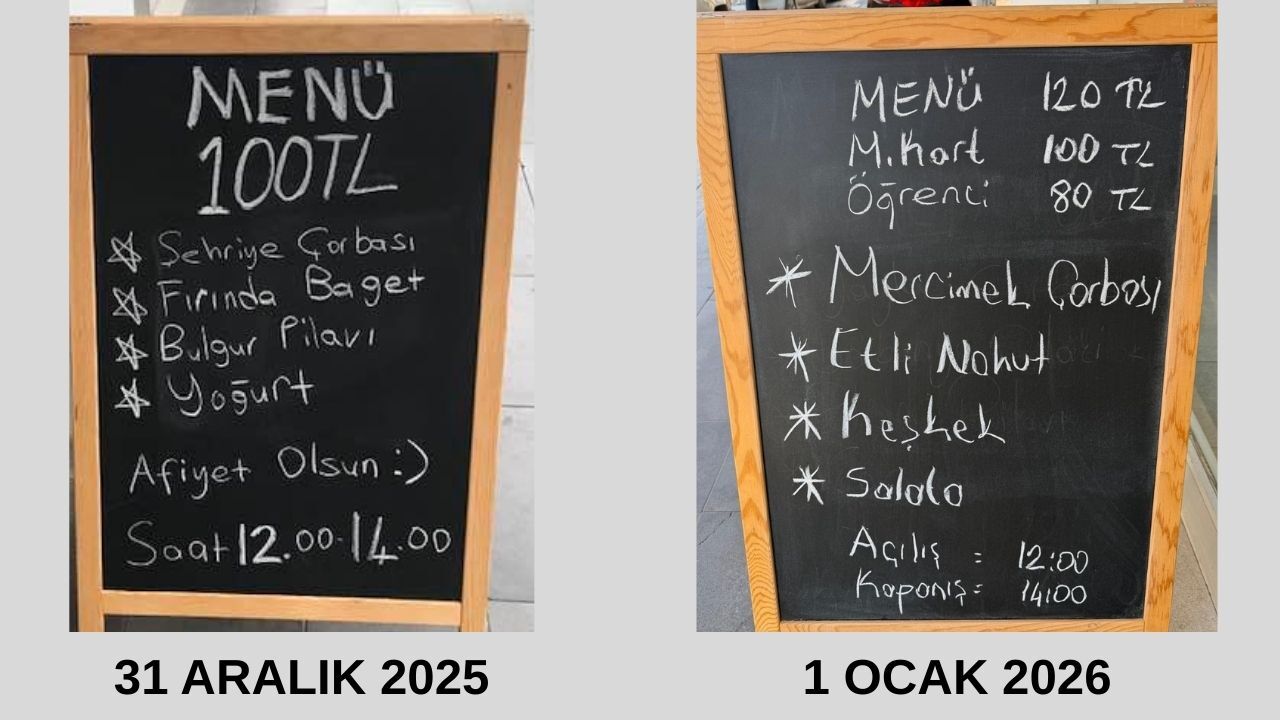 MENÜ
100TL
Şehriye Çorbası
Fırında Baget
Bulgur Pilavı
Yoğurt
Afiyet Olsun :)
Saat 12.00-14.00
31 ARALIK 2025
MENÜ 120 TL
M.Kart 100 TL
Öğrenci 80 TL
* Mercimek Çorbası
* Etli Nohut
* Keşkek
* Salata
Açılış = 12:00
Kapanış = 14:00
1 OCAK 2026